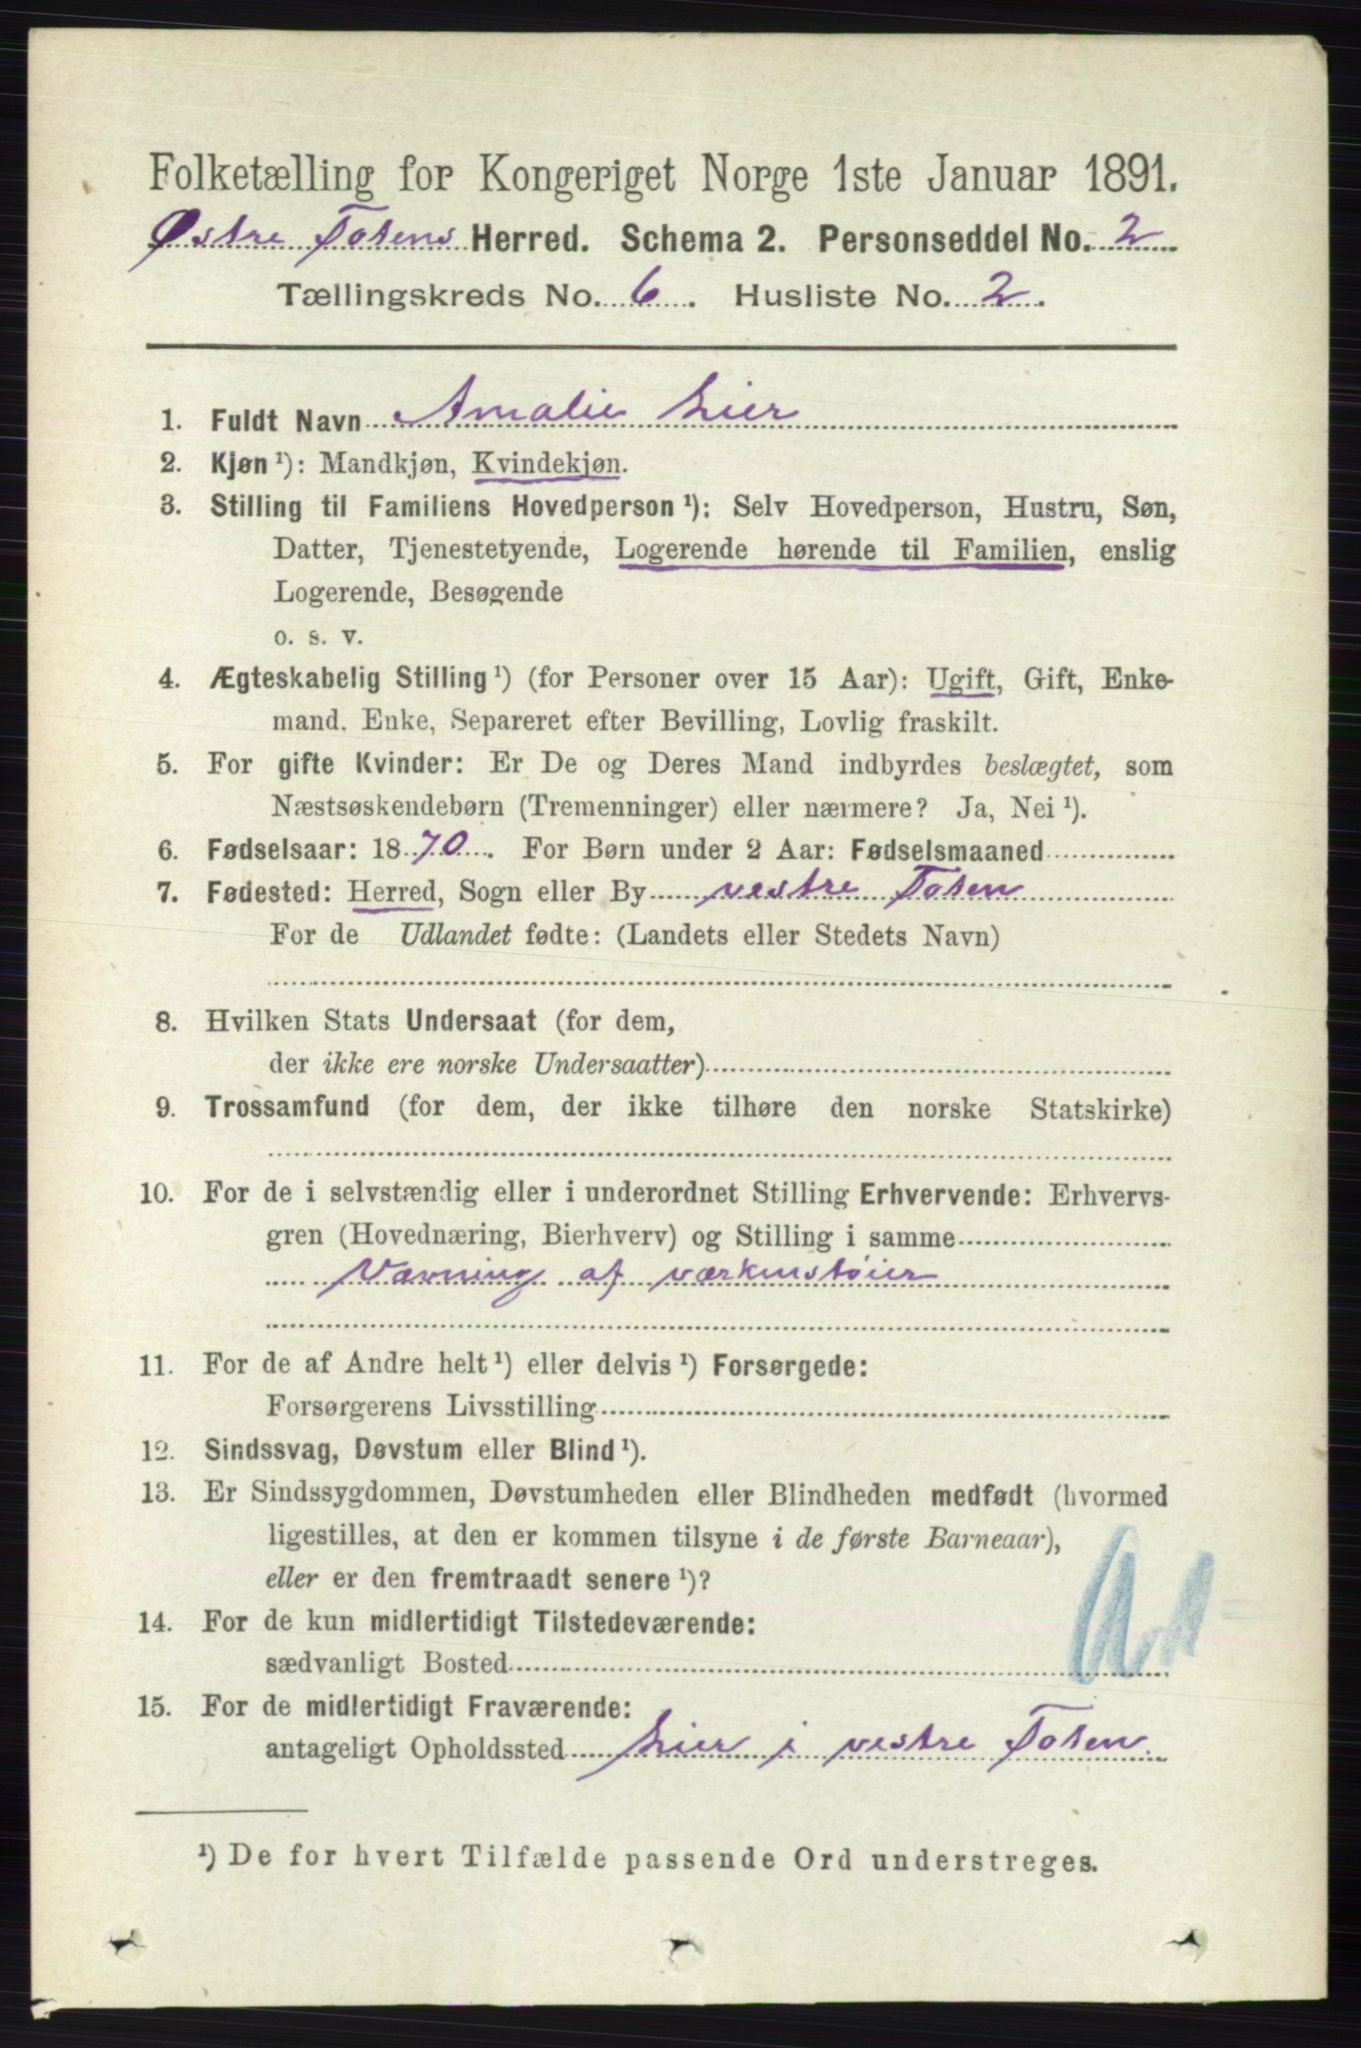 Folketælling for Kongeriget Norge 1ste Januar 1891.
Østre Totens Herred. Schema 2. Personseddel No. 2
Tællingskreds No. 6. Husliste No. 2.
1. Fuldt Navn Amalie Lier
2. Kjøn ¹): Mandkjøn, Kvindekjøn.
3. Stilling til Familiens Hovedperson ¹): Selv Hovedperson, Hustru, Søn,
Datter, Tjenestetyende, Logerende hørende til Familien, enslig
Logerende, Besøgende
o. s. v.
4. Ægteskabelig Stilling ¹) (for Personer over 15 Aar): Ugift, Gift, Enke-
mand. Enke, Separeret efter Bevilling, Lovlig fraskilt.
5. For gifte Kvinder: Er De og Deres Mand indbyrdes beslægtet, som
Næstsøskendebørn (Tremenninger) eller nærmere? Ja, Nei ¹).
6. Fødselsaar: 1870. For Børn under 2 Aar: Fødselsmaaned
7. Fødested: Herred, Sogn eller By vestre Toten
For de Udlandet fødte: (Landets eller Stedets Navn)
8. Hvilken Stats Undersaat (for dem,
der ikke ere norske Undersaatter)
9. Trossamfund (for dem, der ikke tilhøre den norske Statskirke)
10. For de i selvstændig eller i underordnet Stilling Erhvervende: Erhvervs-
gren (Hovednæring, Bierhverv) og Stilling i samme
Vævning af værkenstøier
11. For de af Andre helt ¹) eller delvis ¹) Forsørgede:
Forsørgerens Livsstilling
12. Sindssvag, Døvstum eller Blind ¹).
13. Er Sindssygdommen, Døvstumheden eller Blindheden medfødt (hvormed
ligestilles, at den er kommen tilsyne i de første Barneaar),
eller er den fremtraadt senere ¹)?
14. For de kun midlertidigt Tilstedeværende:
sædvanligt Bosted
15. For de midlertidigt Fraværende:
antageligt Opholdssted Lier i vestre Toten.
¹) De for hvert Tilfælde passende Ord understreges.